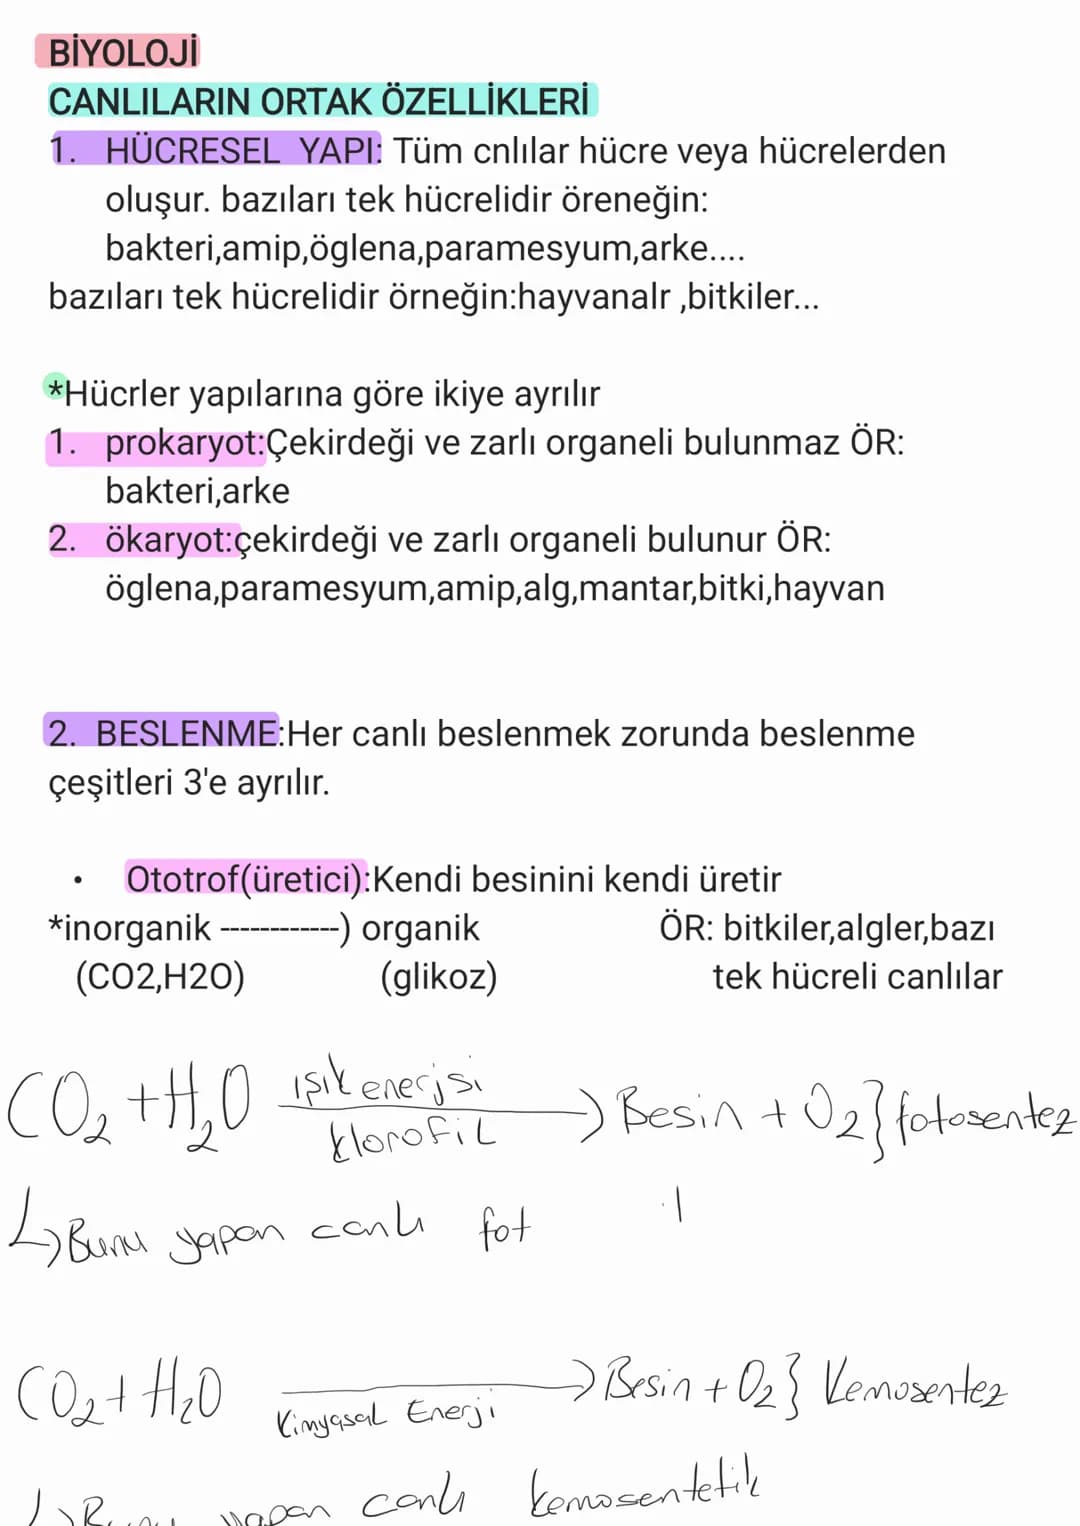 BİYOLOJİ
CANLILARIN ORTAK ÖZELLİKLERİ
1. HÜCRESEL YAPI: Tüm cnlılar hücre veya hücrelerden
oluşur. bazıları tek hücrelidir öreneğin:
bakteri,amip,öglena,paramesyum,arke....
bazıları tek hücrelidir örneğin:hayvanalr ,bitkiler...
*Hücrler yapılarına göre ikiye ayrılır
1. prokaryot:Çekirdeği ve zarlı organeli bulunmaz ÖR:
bakteri,arke
2. ökaryot:çekirdeği ve zarlı organeli bulunur ÖR:
öglena,paramesyum,amip,alg,mantar,bitki,hayvan
2. BESLENME:Her canlı beslenmek zorunda beslenme
çeşitleri 3'e ayrılır.
• Ototrof(üretici):Kendi besinini kendi üretir
*inorganik ------------) organik ÖR: bitkiler,algler,bazı
(CO2,H2O) (glikoz) tek hücreli canlılar
CO₂ + H₂O ışık enerjsi klorofil → Besin + O₂} fotosentez
↳ Bunu yapan canlı fot
CO₂ + H₂O Kimyasal Enerji → Besin + O₂} Kemosentez
↳ Bunu yapan canlı kemosentetik